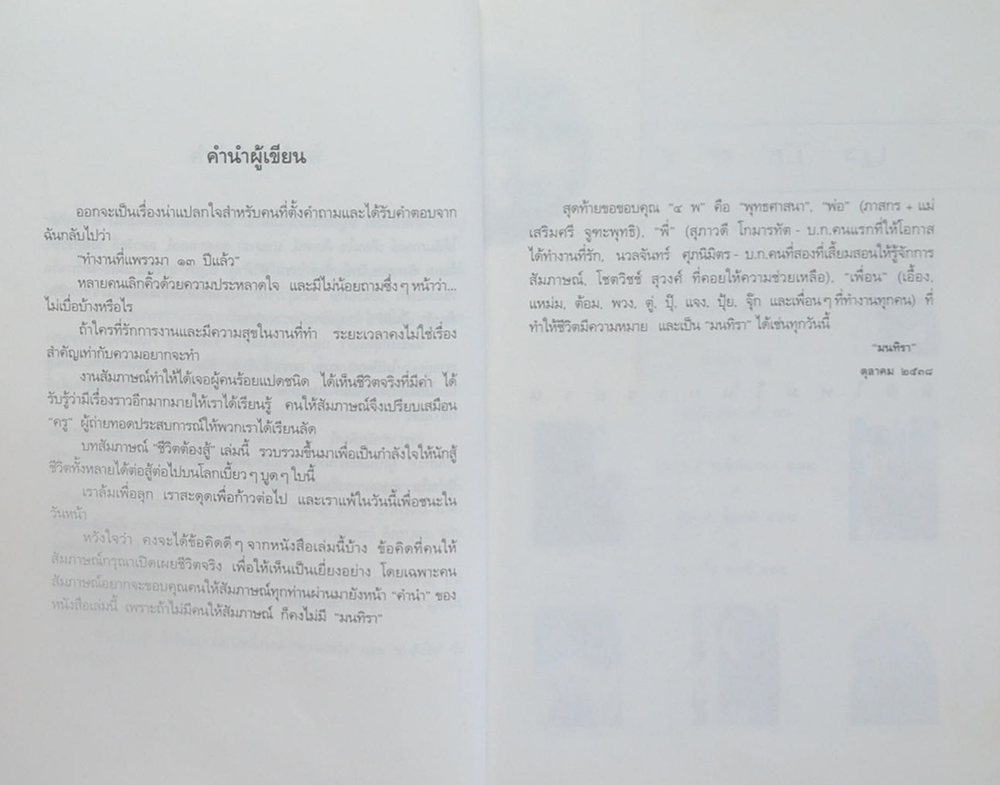 คำนำผู้เขียน
ออกจะเป็นเรื่องน่าแปลกใจสำหรับคนที่ตั้งคำถามและได้รับคำตอบจาก
ฉันกลับไปว่า
"ทำงานที่แพรวมา ๑๓ ปีแล้ว"
หลายคนเลิกคิ้วด้วยความประหลาดใจ และมีไม่น้อยถามซึ่งๆ หน้าว่า...
ไม่เบื่อบ้างหรือไร
ถ้าใครที่รักการงานและมีความสุขในงานที่ทำ ระยะเวลาคงไม่ใช่เรื่อง
สำคัญเท่ากับความอยากจะทำ
งานสัมภาษณ์ทำให้ได้เจอผู้คนร้อยแปดชนิด ได้เห็นชีวิตจริงที่มีค่า ได้
รับรู้ว่ามีเรื่องราวอีกมากมายให้เราได้เรียนรู้ คนให้สัมภาษณ์จึงเปรียบเสมือน
"ครู" ผู้ถ่ายทอดประสบการณ์ให้พวกเราได้เรียนลัด
บทสัมภาษณ์ "ชีวิตต้องสู้" เล่มนี้ รวบรวมขึ้นมาเพื่อเป็นกำลังใจให้นักสู้
ชีวิตทั้งหลายได้ต่อสู้ต่อไปบนโลกเบี้ยวๆ บูดๆ ใบนี้
เราล้มเพื่อลุก เราสะดุดเพื่อก้าวต่อไป และเราแพ้ในวันนี้เพื่อชนะใน
วันหน้า
หวังใจว่า คงจะได้ข้อคิดดีๆ จากหนังสือเล่มนี้บ้าง ข้อคิดที่คนให้
สัมภาษณ์กรุณาเปิดเผยชีวิตจริง เพื่อให้เห็นเป็นเยี่ยงอย่าง โดยเฉพาะคน
สัมภาษณ์อยากจะขอบคุณคนให้สัมภาษณ์ทุกท่านผ่านมายังหน้า "คำนำ" ของ
หนังสือเล่มนี้ เพราะถ้าไม่มีคนให้สัมภาษณ์ ก็คงไม่มี "มนทิรา"
สุดท้ายขอขอบคุณ "๔ พ" คือ "พุทธศาสนา", "พ่อ" (ภาสกร + แม่
เสริมศรี จูฑะพุทธิ), "พี่" (สุภาวดี โกมารทัต - บ.ก.คนแรกที่ให้โอกาส
ได้ทำงานที่รัก, นวลจันทร์ ศุภนิมิตร - บ.ก.คนที่สองที่เสี้ยมสอนให้รู้จักการ
สัมภาษณ์, โชตวิชช์ สุวงศ์ ที่คอยให้ความช่วยเหลือ), "เพื่อน" (เอื้อง,
แหม่ม, ต้อม, พวง, ตู่, ปุ๊, แจง, ปุ้ย, จุ๊ก และเพื่อนๆ ที่ทำงานทุกคน) ที่
ทำให้ชีวิตมีความหมาย และเป็น "มนทิรา" ได้เช่นทุกวันนี้
"มนทิรา"
ตุลาคม ๒๕๓๘